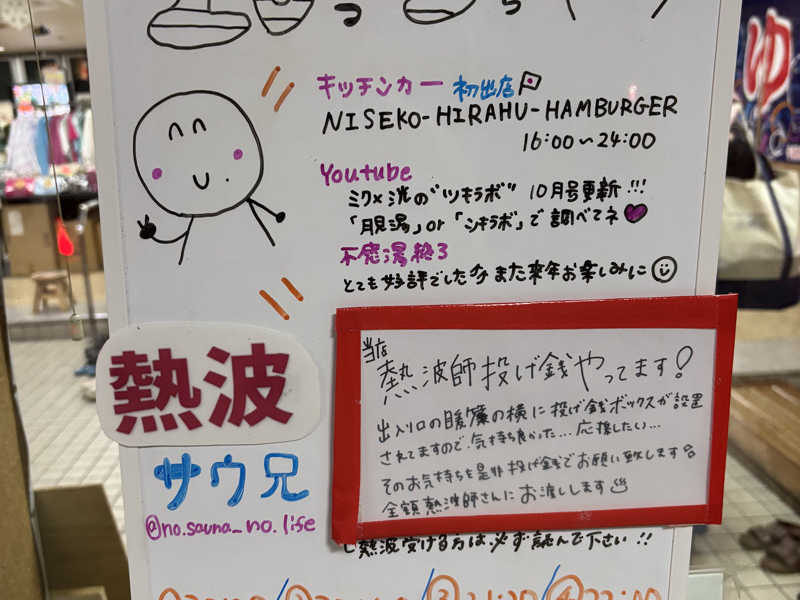 キッチンカー 初出店
NISEKO-HIRAHU-HAMBURGER
16:00~24:00
Youtube
ミク×洸の"ツキラボ" 10月号更新!!!
「月見湯」or「ツキラボ」で調べてネ
不感湯終了
とても好評でした また来年お楽しみに
ゆ
熱波
サウ兄
@no.sauna_no.life
当店
熱波師投げ銭やってます!
出入り口の暖簾の横に投げ銭ボックスが設置
されてますので、気持ち良かった…応援したい…
そのお気持ちを是非投げ銭でお願い致します
全額熱波師さんにお渡しします
熱波受ける方は必ず読んで下さい!!